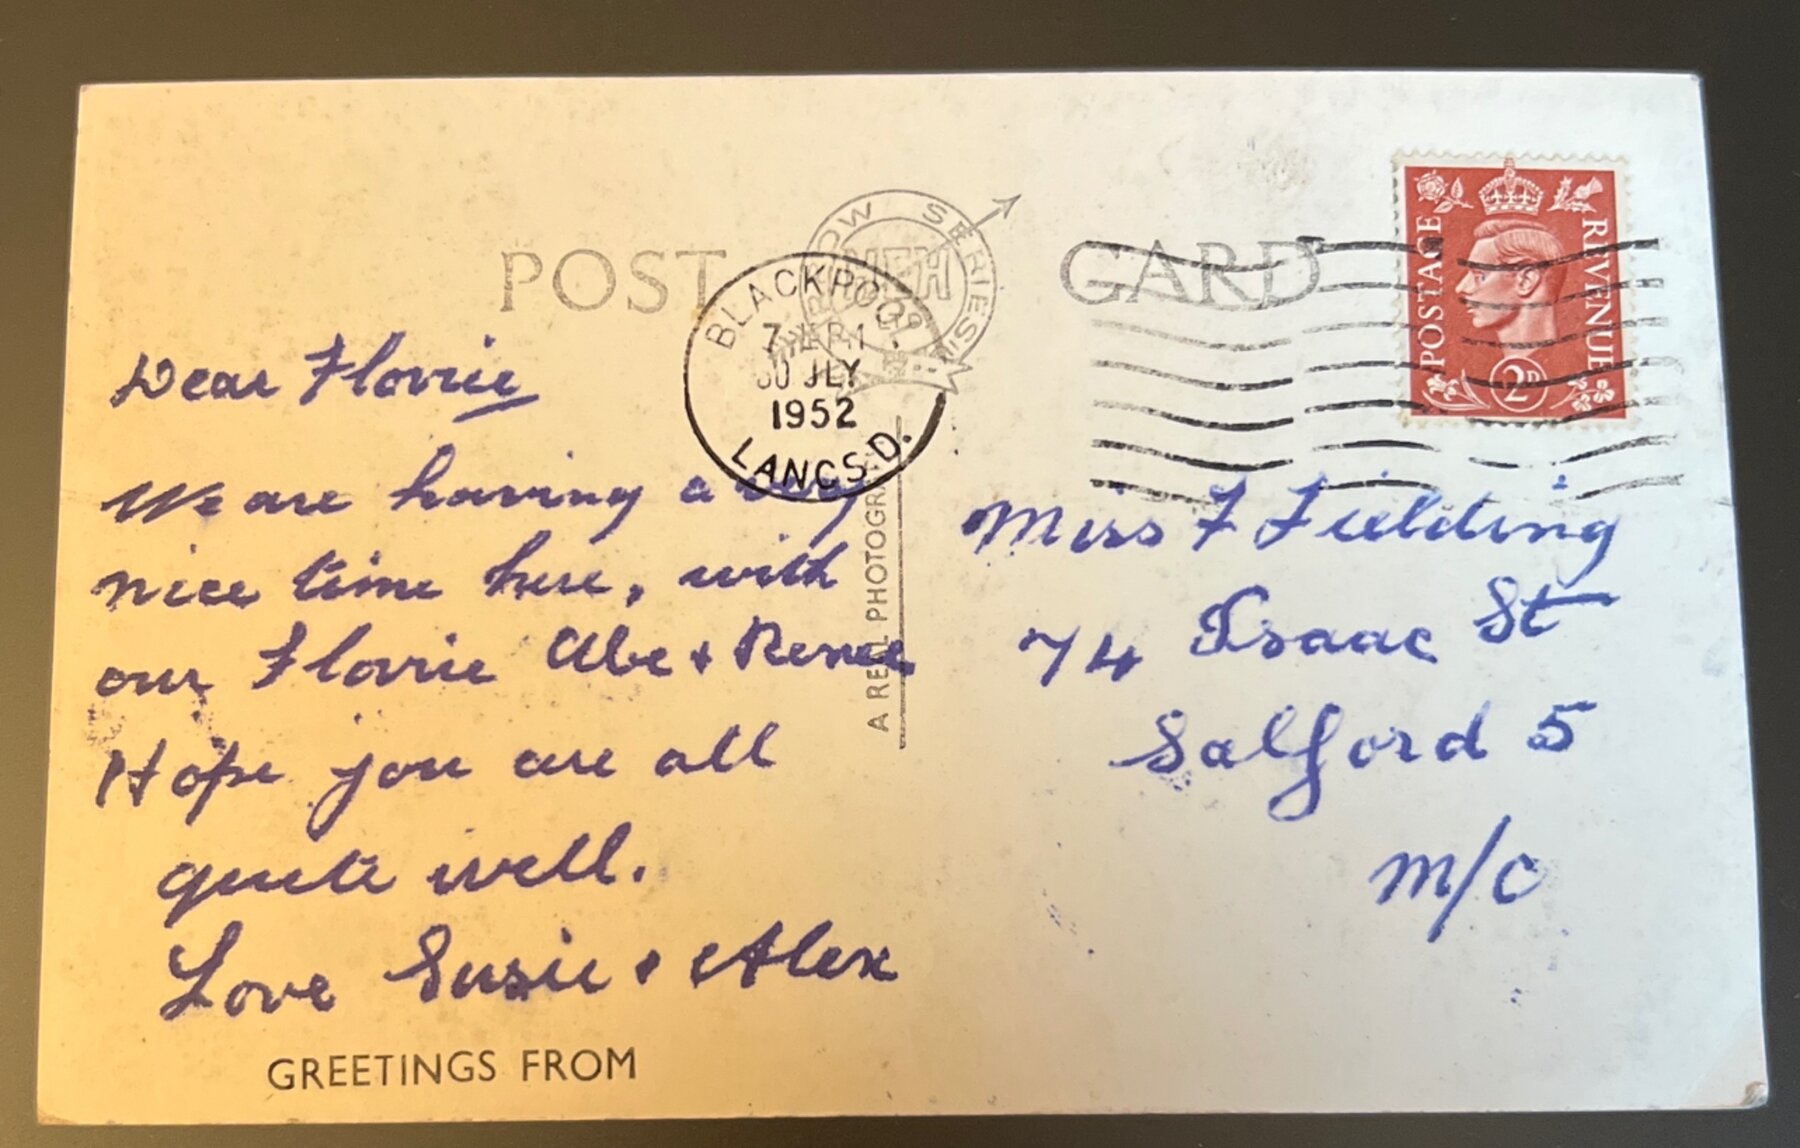 POST CARD
ROW SERIES
BLACKPOOL
30 JLY
1952
LANCS. D.
POSTAGE REVENUE
2D
Dear Florrie
We are having a very
nice time here, with
our Florrie Abe + Renee
Hope you are all
quite well.
Love Susie & Alex
GREETINGS FROM
A REAL PHOTOGR
Miss F Fielding
74 Isaac St
Salford 5
M/C